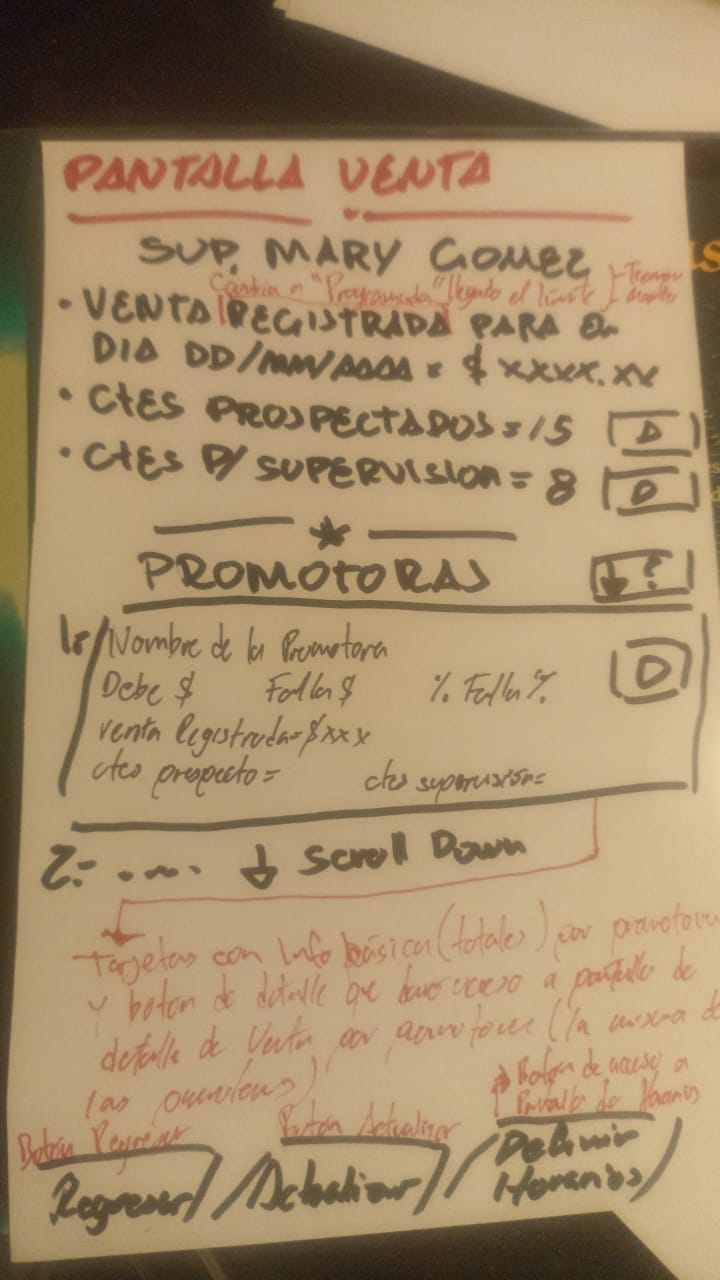 PANTALLA VENTA
SUP. MARY GOMEZ
Cambia a "Programada" llegado el límite
• VENTA REGISTRADA PARA EL
DIA DD/MM/AAAA = $ XXXX.XX
• CTES PROSPECTADOS = 15 D
• CTES P/ SUPERVISION = 8 D
PROMOTORAS ↓ ?
1.- Nombre de la Promotora D
Debe $ Falla $ % Falla %
venta Registrada = $xxx
ctes prospecto = ctes supervisión =
2.- .... ↓ Scroll Down
Tarjetas con Info básica (totales) por promotora
y botón de detalle que acceso a pantalla de
detalle de Venta por promotora (la misma de
las promotoras)
Botón de acceso a
Pantalla de Horarios
Botón Regresar Botón Actualizar
Regresar Actualizar Definir
Horarios